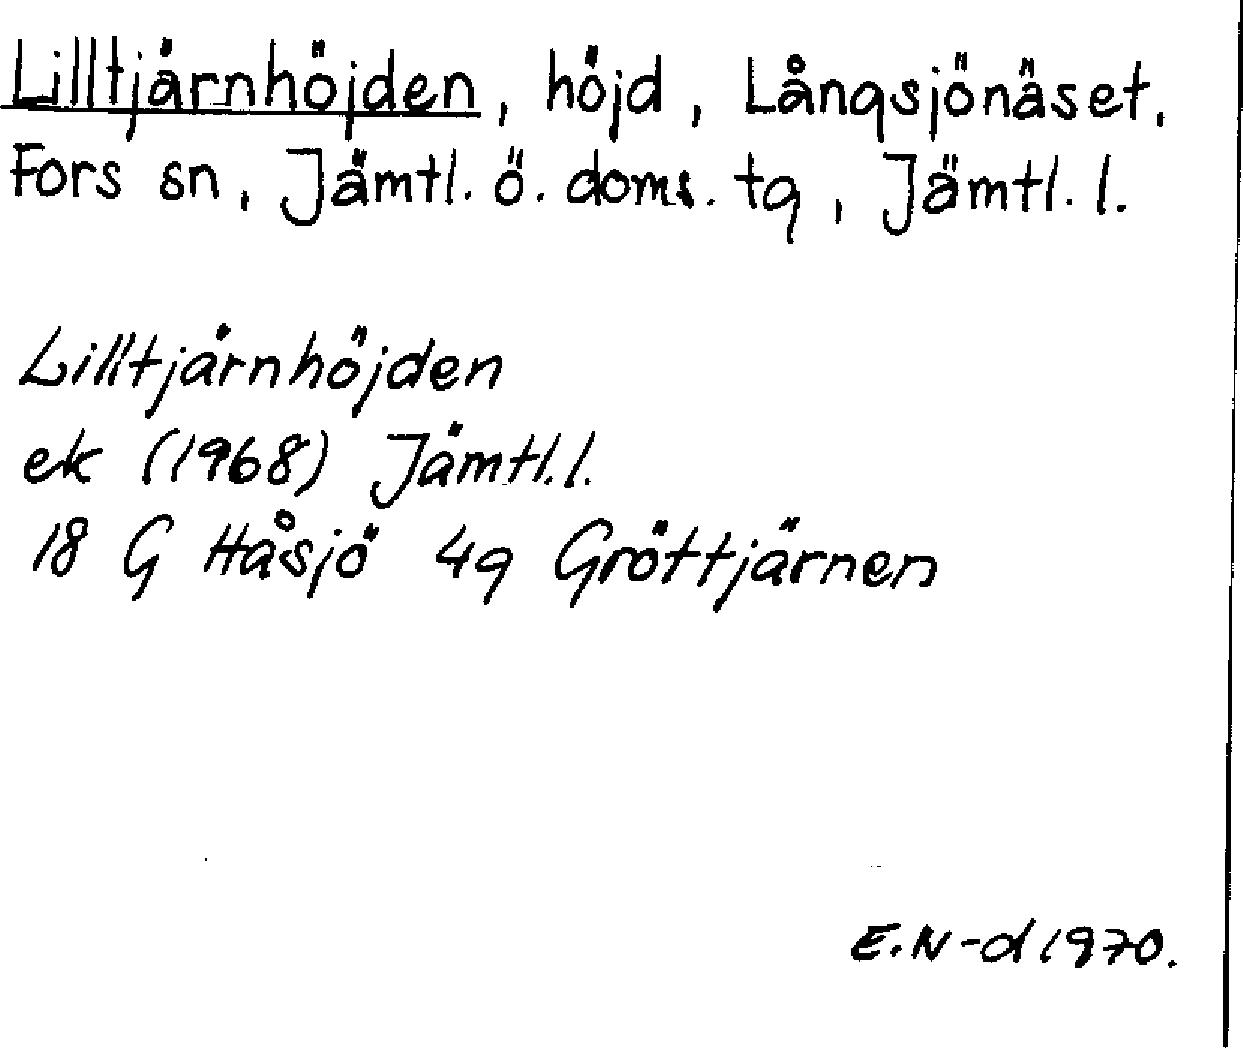 Lilltjärnhöjden, höjd, Långsjönäset,
Fors sn, Jämtl. ö. doms. tg, Jämtl. l.
Lilltjärnhöjden
ek (1968) Jämtl. l.
18 G Håsjö 4g Gröttjärnen
E.N-d 1970.